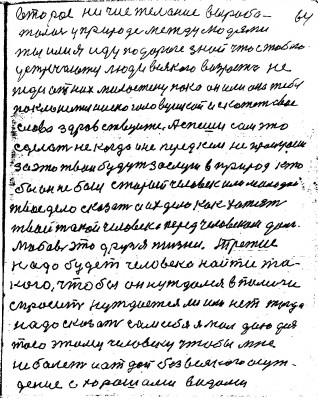 второе ни чие желание вырабо- 64
талас у природе между людями
ты имея иду по дороге знай что стобою
устречаютця люди всякого возрастъ не
жди от них милостыну пока он или она тебе
поклонитця низко головушкой и скажет свое
слово здравствуйте. А спеши сам это
сделат некогда не пред кем не
за это твои будут заслуги в природе кто
бы он не был старий человек или молодой
твое дело сказат а их дело как хотят
твой такой человека перед человеком дол.
Любов это друзя жизни. Третие
надо будет человека найти та-
кого, чтобы он нуждался в
спросит нуждается ли или нет тогда
надо сказат сам себе я мол даю для
того этому человеку чтобы мне
не болет и отдай без всякого осуж-
дение с хорошими видами